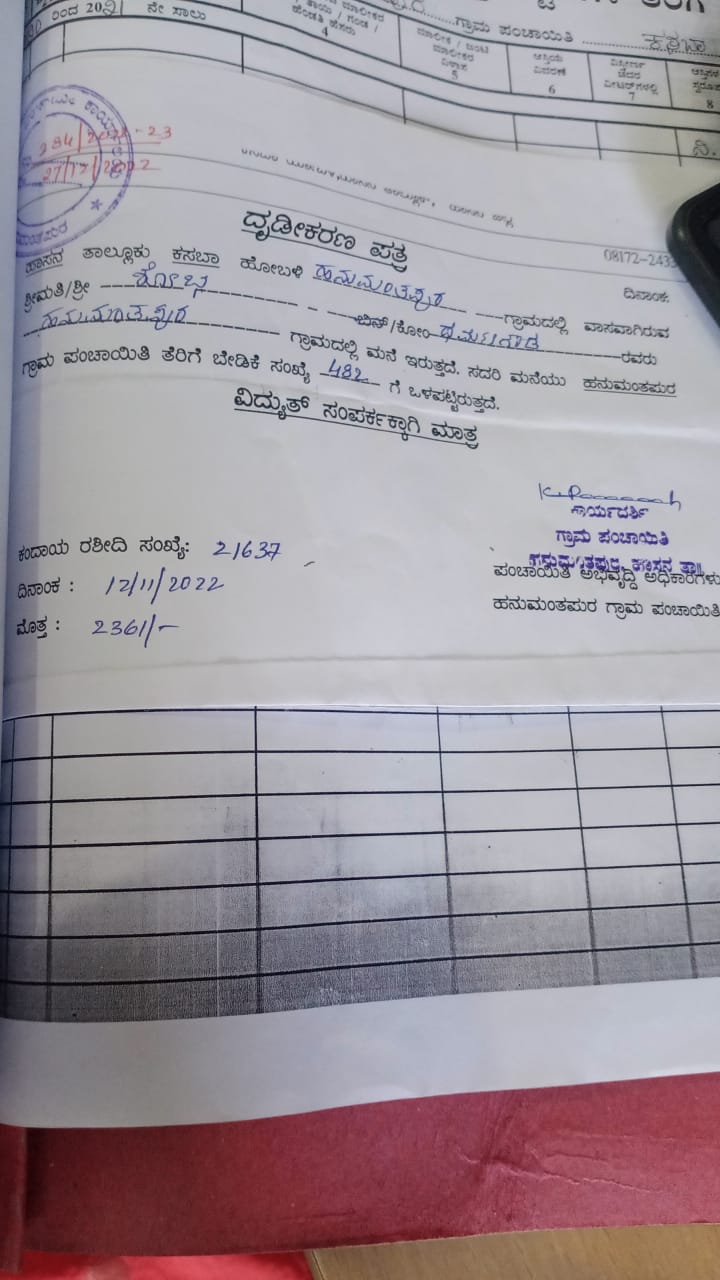 ರಿಂದ 2021 ನೇ ಸಾಲು
ಗ್ರಾಮ ಪಂಚಾಯಿತಿ ಕಸಬಾ
ಹೆಂಡತಿ ಹೆಸರು
4
ಮಾಲೀಕರ
ವಿಳಾಸ
5
ಆಸ್ತಿಯ
ವಿವರಣೆ
6
7
8
ನಿ.
234/2022-23
27/12/2022
ದೃಡೀಕರಣ ಪತ್ರ
08172-243
ದಿನಾಂಕ:
ಹಾಸನ ತಾಲ್ಲೂಕು ಕಸಬಾ ಹೋಬಳಿ ಹನುಮಂತಪುರ ಗ್ರಾಮದಲ್ಲಿ ವಾಸವಾಗಿರುವ
ಶ್ರೀಮತಿ/ಶ್ರೀ ಶೋಭ ಬಿನ್/ಕೋಂ ಧರ್ಮೇಗೌಡ ರವರು
ಹನುಮಂತಪುರ ಗ್ರಾಮದಲ್ಲಿ ಮನೆ ಇರುತ್ತದೆ. ಸದರಿ ಮನೆಯು ಹನುಮಂತಪುರ
ಗ್ರಾಮ ಪಂಚಾಯಿತಿ ತೆರಿಗೆ ಬೇಡಿಕೆ ಸಂಖ್ಯೆ 482 ಗೆ ಒಳಪಟ್ಟಿರುತ್ತದೆ.
ವಿದ್ಯುತ್ ಸಂಪರ್ಕಕ್ಕಾಗಿ ಮಾತ್ರ
ಕಾರ್ಯದರ್ಶಿ
ಗ್ರಾಮ ಪಂಚಾಯಿತಿ
ಹನುಮಂತಪುರ, ಹಾಸನ ತಾ||
ಪಂಚಾಯಿತಿ ಅಭಿವೃದ್ಧಿ ಅಧಿಕಾರಿಗಳು
ಹನುಮಂತಪುರ ಗ್ರಾಮ ಪಂಚಾಯಿತಿ
ಕಂದಾಯ ರಶೀದಿ ಸಂಖ್ಯೆ: 21637
ದಿನಾಂಕ : 12/11/2022
ಮೊತ್ತ : 2361/-